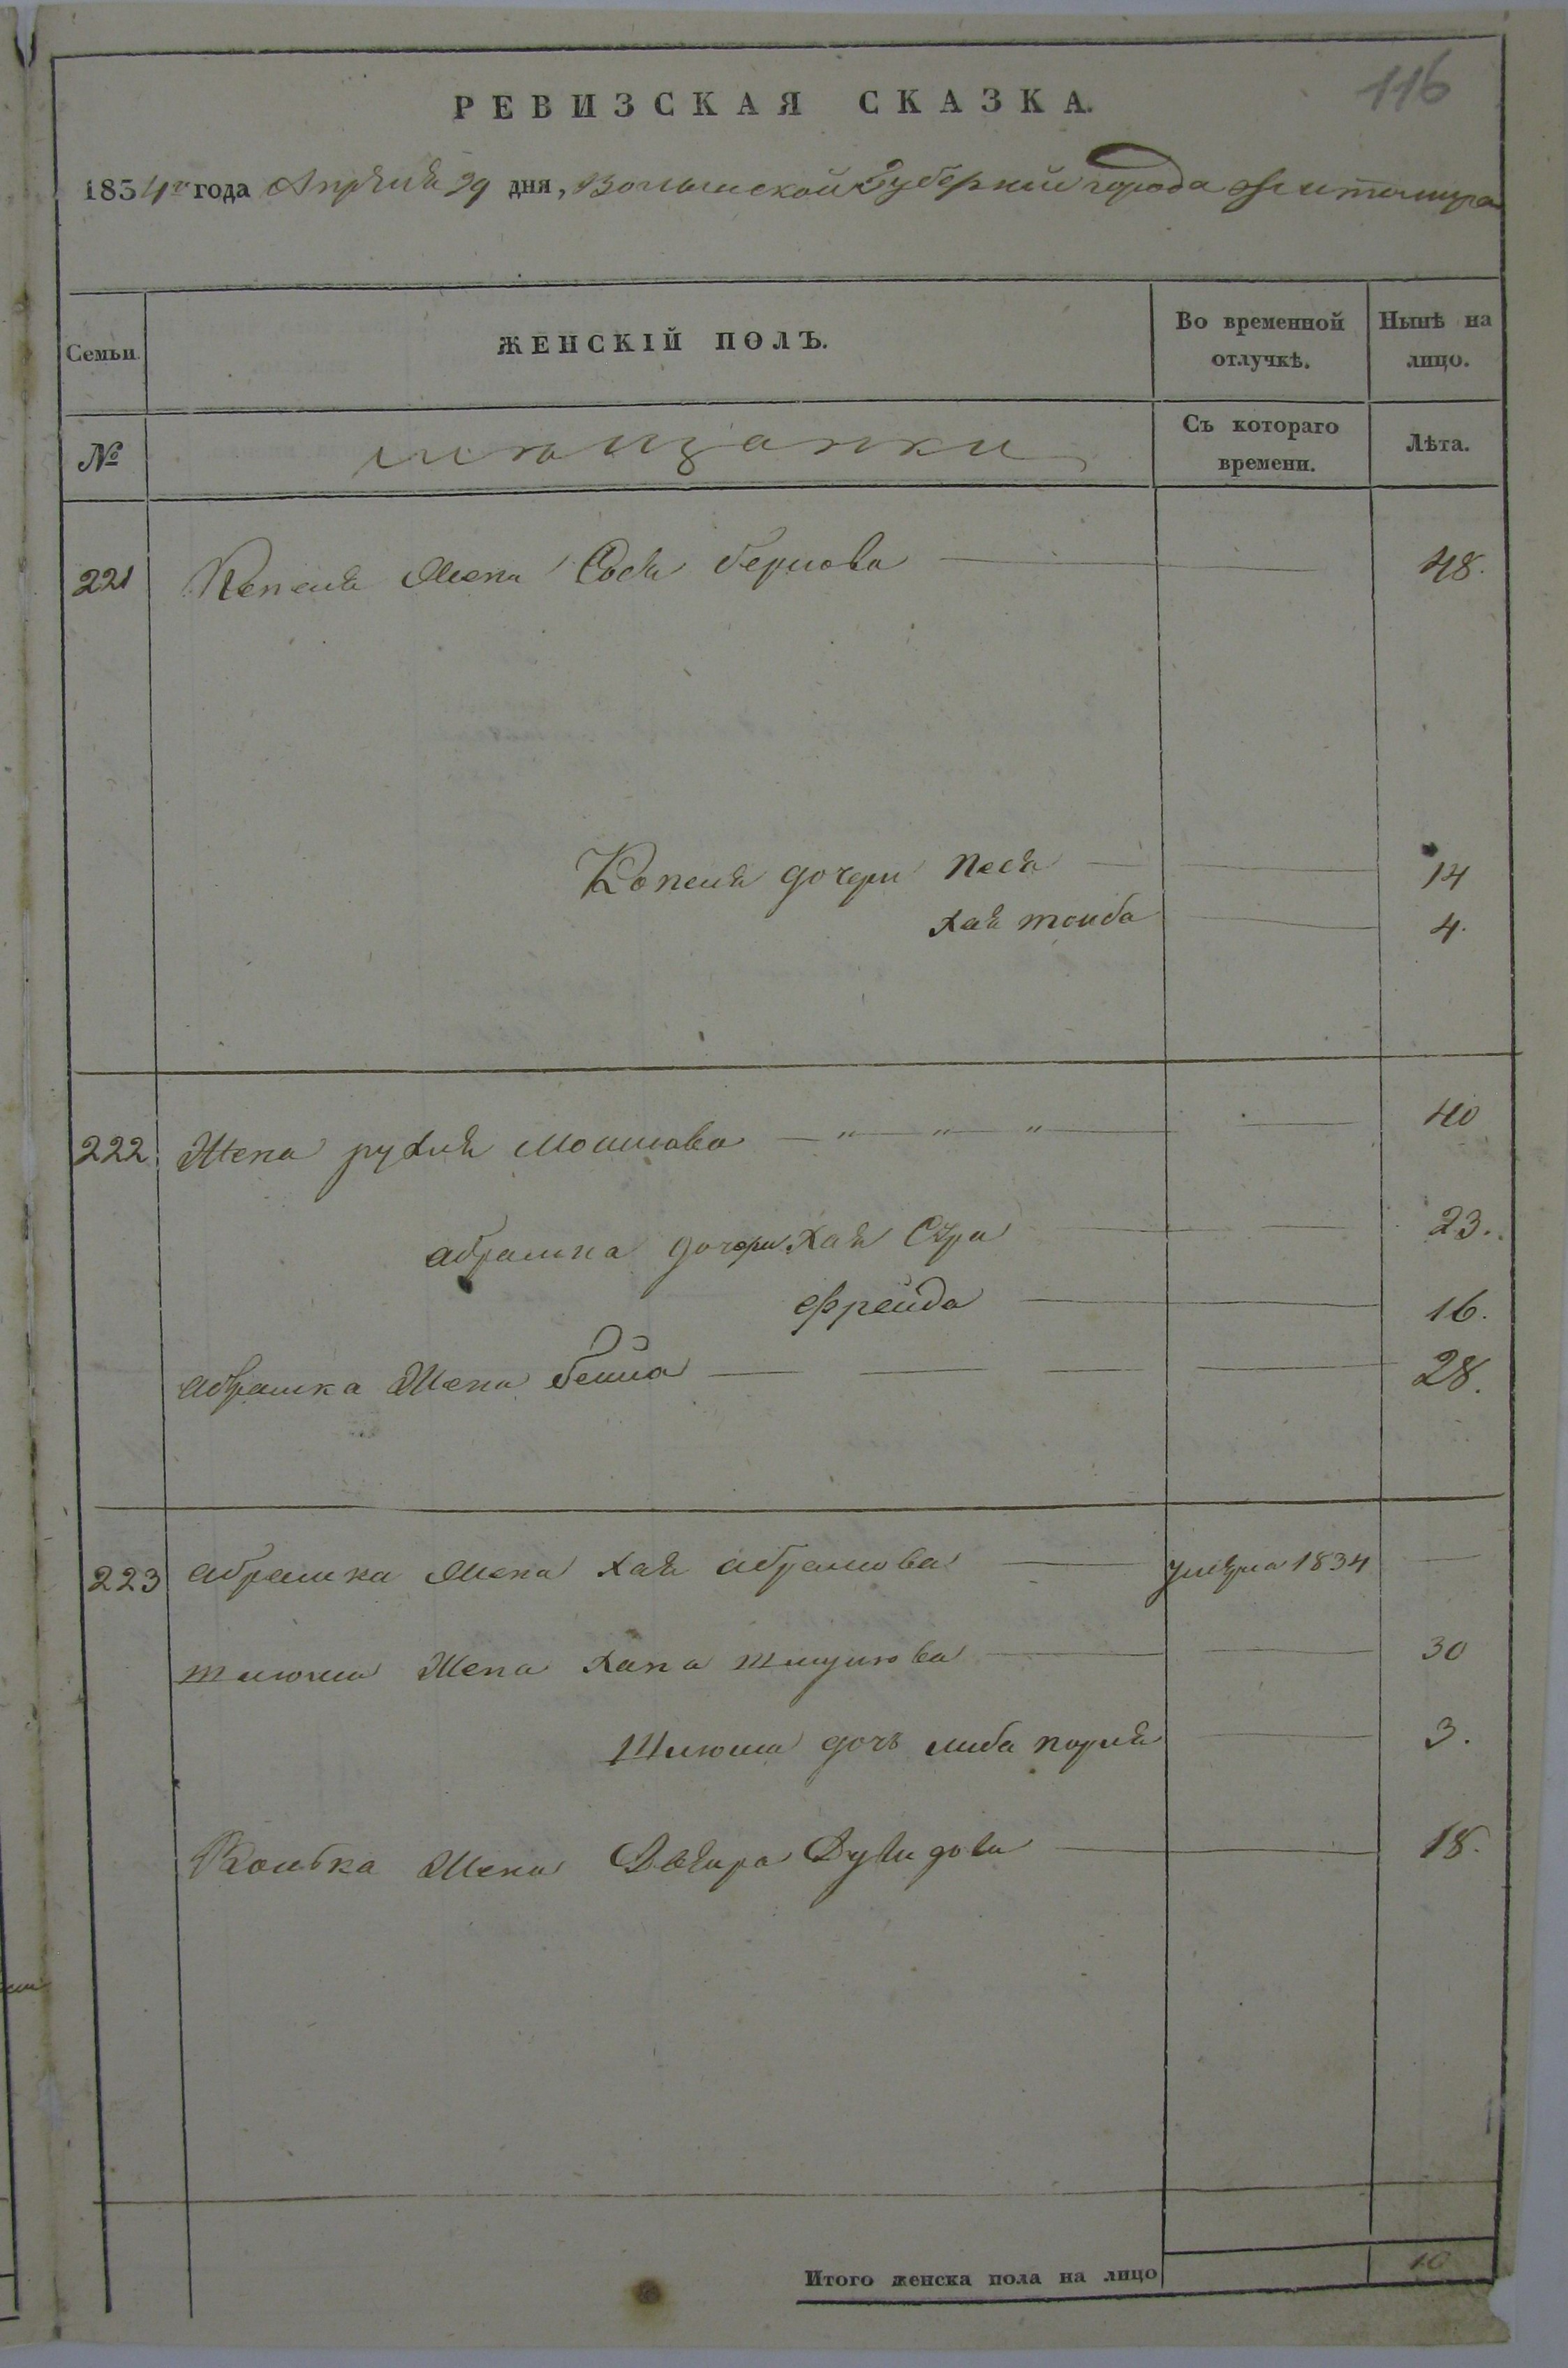 116
РЕВИЗСКАЯ СКАЗКА.
1834го года Апреля 29 дня, Волынской Губернии города Житомира
Семьи. ЖЕНСКІЙ ПОЛЪ. Во временной отлучкѣ. Нынѣ на лицо.
№ мещанки Съ котораго времени. Лѣта.
221 Кепеля Жена Сося беркова 48.
Копеля дочери Песя 14
Хая тойба 4.
222 Жена рухля Мошкова 40
абрамка дочери Хая Сура 23.
Фрейда 16.
абрамка Жена бейла 28.
223 абрамка Жена Хая абрамова умерла 1834
Шлюма Жена Хана Шмулиова 30
Шлюма дочь либа перля 3.
Кольбка Жена Двейра Дувидова 18.
Итого женска пола на лицо 10